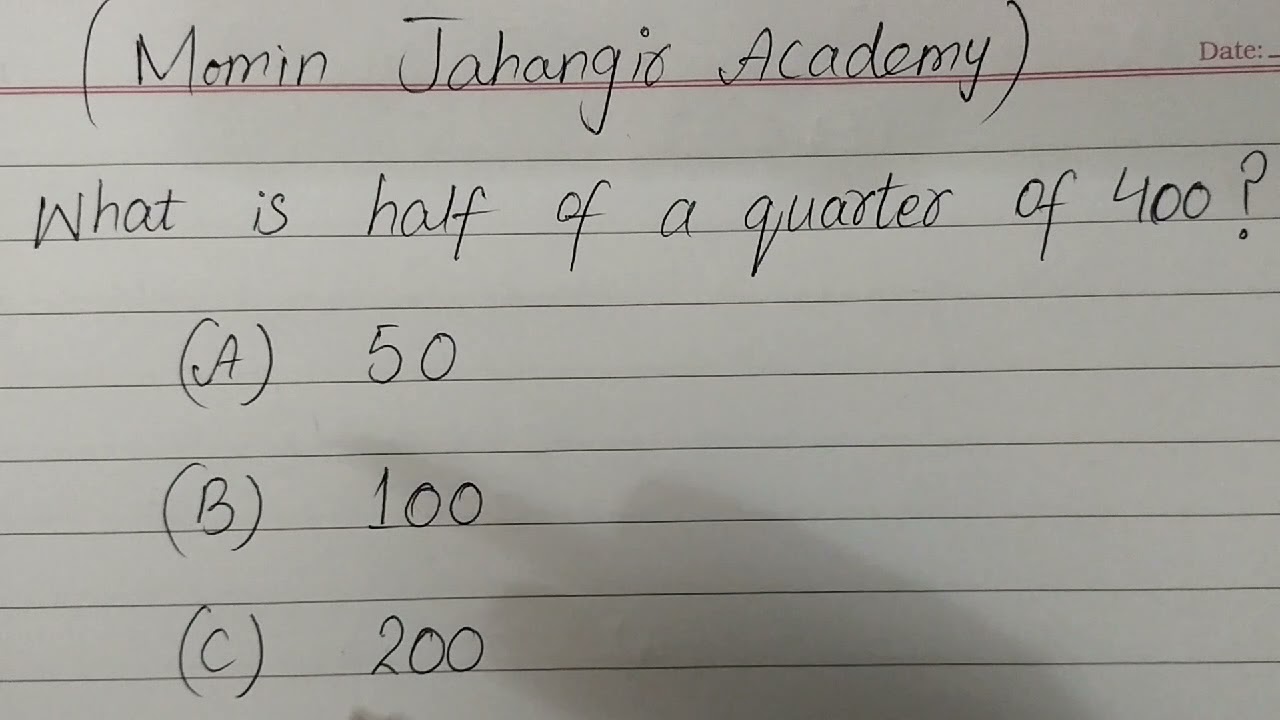 (Momin Jahangir Academy)
Date:
What is half of a quarter of 400?
(A) 50
(B) 100
(C) 200